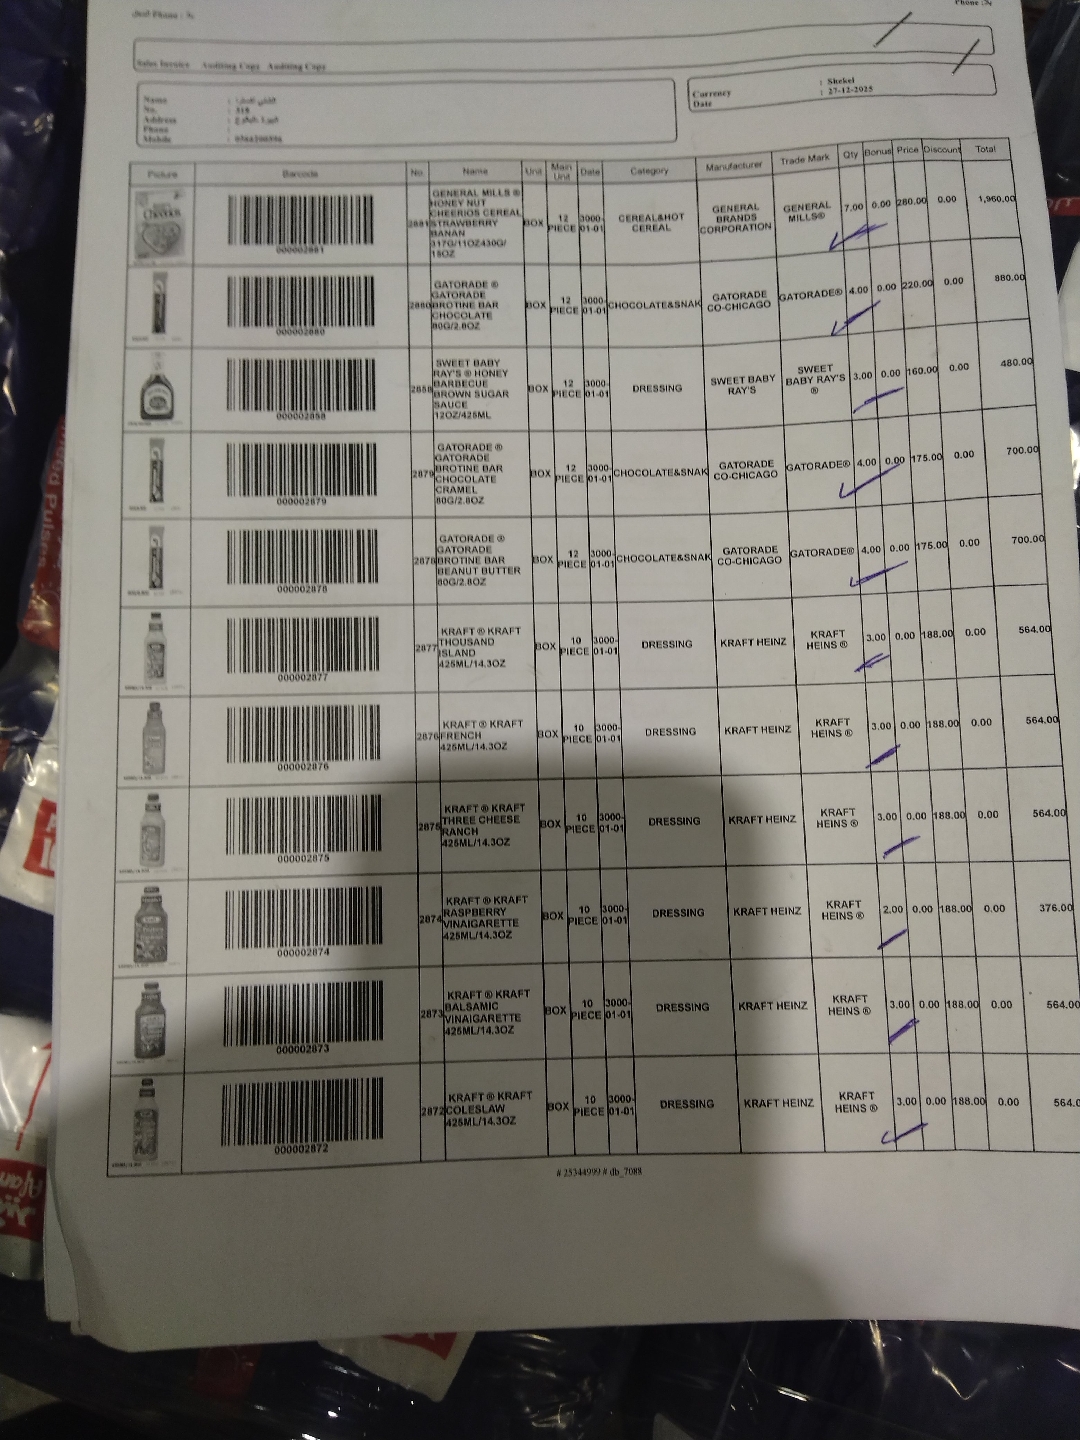 Phone :
Sales Invoice Auditing Copy Auditing Copy
Name :
No. : 318
Address :
Phone :
Mobile :
Currency : Shekel
Date : 27-12-2025
Picture Barcode No. Name Unit Main Unit Date Category Manufacturer Trade Mark Qty Bonus Price Discount Total
000002881 2881 GENERAL MILLS ® HONEY NUT CHEERIOS CEREAL STRAWBERRY BANAN 317G/11OZ430G/ 15OZ BOX 12 PIECE 3000-01-01 CEREAL&HOT CEREAL GENERAL BRANDS CORPORATION GENERAL MILLS® 7.00 0.00 280.00 0.00 1,960.00
000002880 2880 GATORADE ® GATORADE BROTINE BAR CHOCOLATE 80G/2.8OZ BOX 12 PIECE 3000-01-01 CHOCOLATE&SNAK GATORADE CO-CHICAGO GATORADE® 4.00 0.00 220.00 0.00 880.00
000002858 2858 SWEET BABY RAY'S ® HONEY BARBECUE BROWN SUGAR SAUCE 12OZ/425ML BOX 12 PIECE 3000-01-01 DRESSING SWEET BABY RAY'S SWEET BABY RAY'S ® 3.00 0.00 160.00 0.00 480.00
000002879 2879 GATORADE ® GATORADE BROTINE BAR CHOCOLATE CRAMEL 80G/2.8OZ BOX 12 PIECE 3000-01-01 CHOCOLATE&SNAK GATORADE CO-CHICAGO GATORADE® 4.00 0.00 175.00 0.00 700.00
000002878 2878 GATORADE ® GATORADE BROTINE BAR BEANUT BUTTER 80G/2.8OZ BOX 12 PIECE 3000-01-01 CHOCOLATE&SNAK GATORADE CO-CHICAGO GATORADE® 4.00 0.00 175.00 0.00 700.00
000002877 2877 KRAFT ® KRAFT THOUSAND ISLAND 425ML/14.3OZ BOX 10 PIECE 3000-01-01 DRESSING KRAFT HEINZ KRAFT HEINS ® 3.00 0.00 188.00 0.00 564.00
000002876 2876 KRAFT ® KRAFT FRENCH 425ML/14.3OZ BOX 10 PIECE 3000-01-01 DRESSING KRAFT HEINZ KRAFT HEINS ® 3.00 0.00 188.00 0.00 564.00
000002875 2875 KRAFT ® KRAFT THREE CHEESE RANCH 425ML/14.3OZ BOX 10 PIECE 3000-01-01 DRESSING KRAFT HEINZ KRAFT HEINS ® 3.00 0.00 188.00 0.00 564.00
000002874 2874 KRAFT ® KRAFT RASPBERRY VINAIGARETTE 425ML/14.3OZ BOX 10 PIECE 3000-01-01 DRESSING KRAFT HEINZ KRAFT HEINS ® 2.00 0.00 188.00 0.00 376.00
000002873 2873 KRAFT ® KRAFT BALSAMIC VINAIGARETTE 425ML/14.3OZ BOX 10 PIECE 3000-01-01 DRESSING KRAFT HEINZ KRAFT HEINS ® 3.00 0.00 188.00 0.00 564.00
000002872 2872 KRAFT ® KRAFT COLESLAW 425ML/14.3OZ BOX 10 PIECE 3000-01-01 DRESSING KRAFT HEINZ KRAFT HEINS ® 3.00 0.00 188.00 0.00 564.0
# 25344999 # db_7088